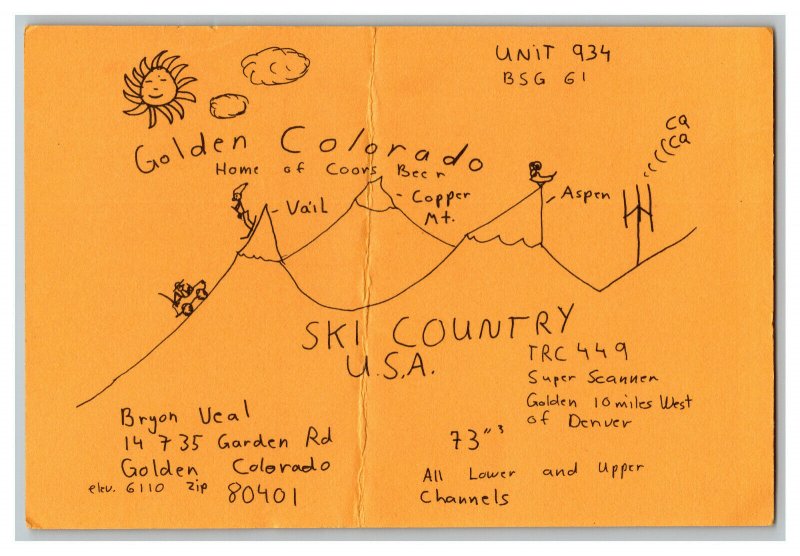 UNIT 934
BSG 61
ca
ca
Golden Colorado
Home of Coors Beer
- Vail
- Copper
Mt.
- Aspen
SKI COUNTRY
U.S.A.
TRC 449
Super Scanner
Golden 10 miles West
of Denver
Bryon Veal
14735 Garden Rd
Golden Colorado
elev. 6110 zip 80401
73"³
All Lower and Upper
Channels